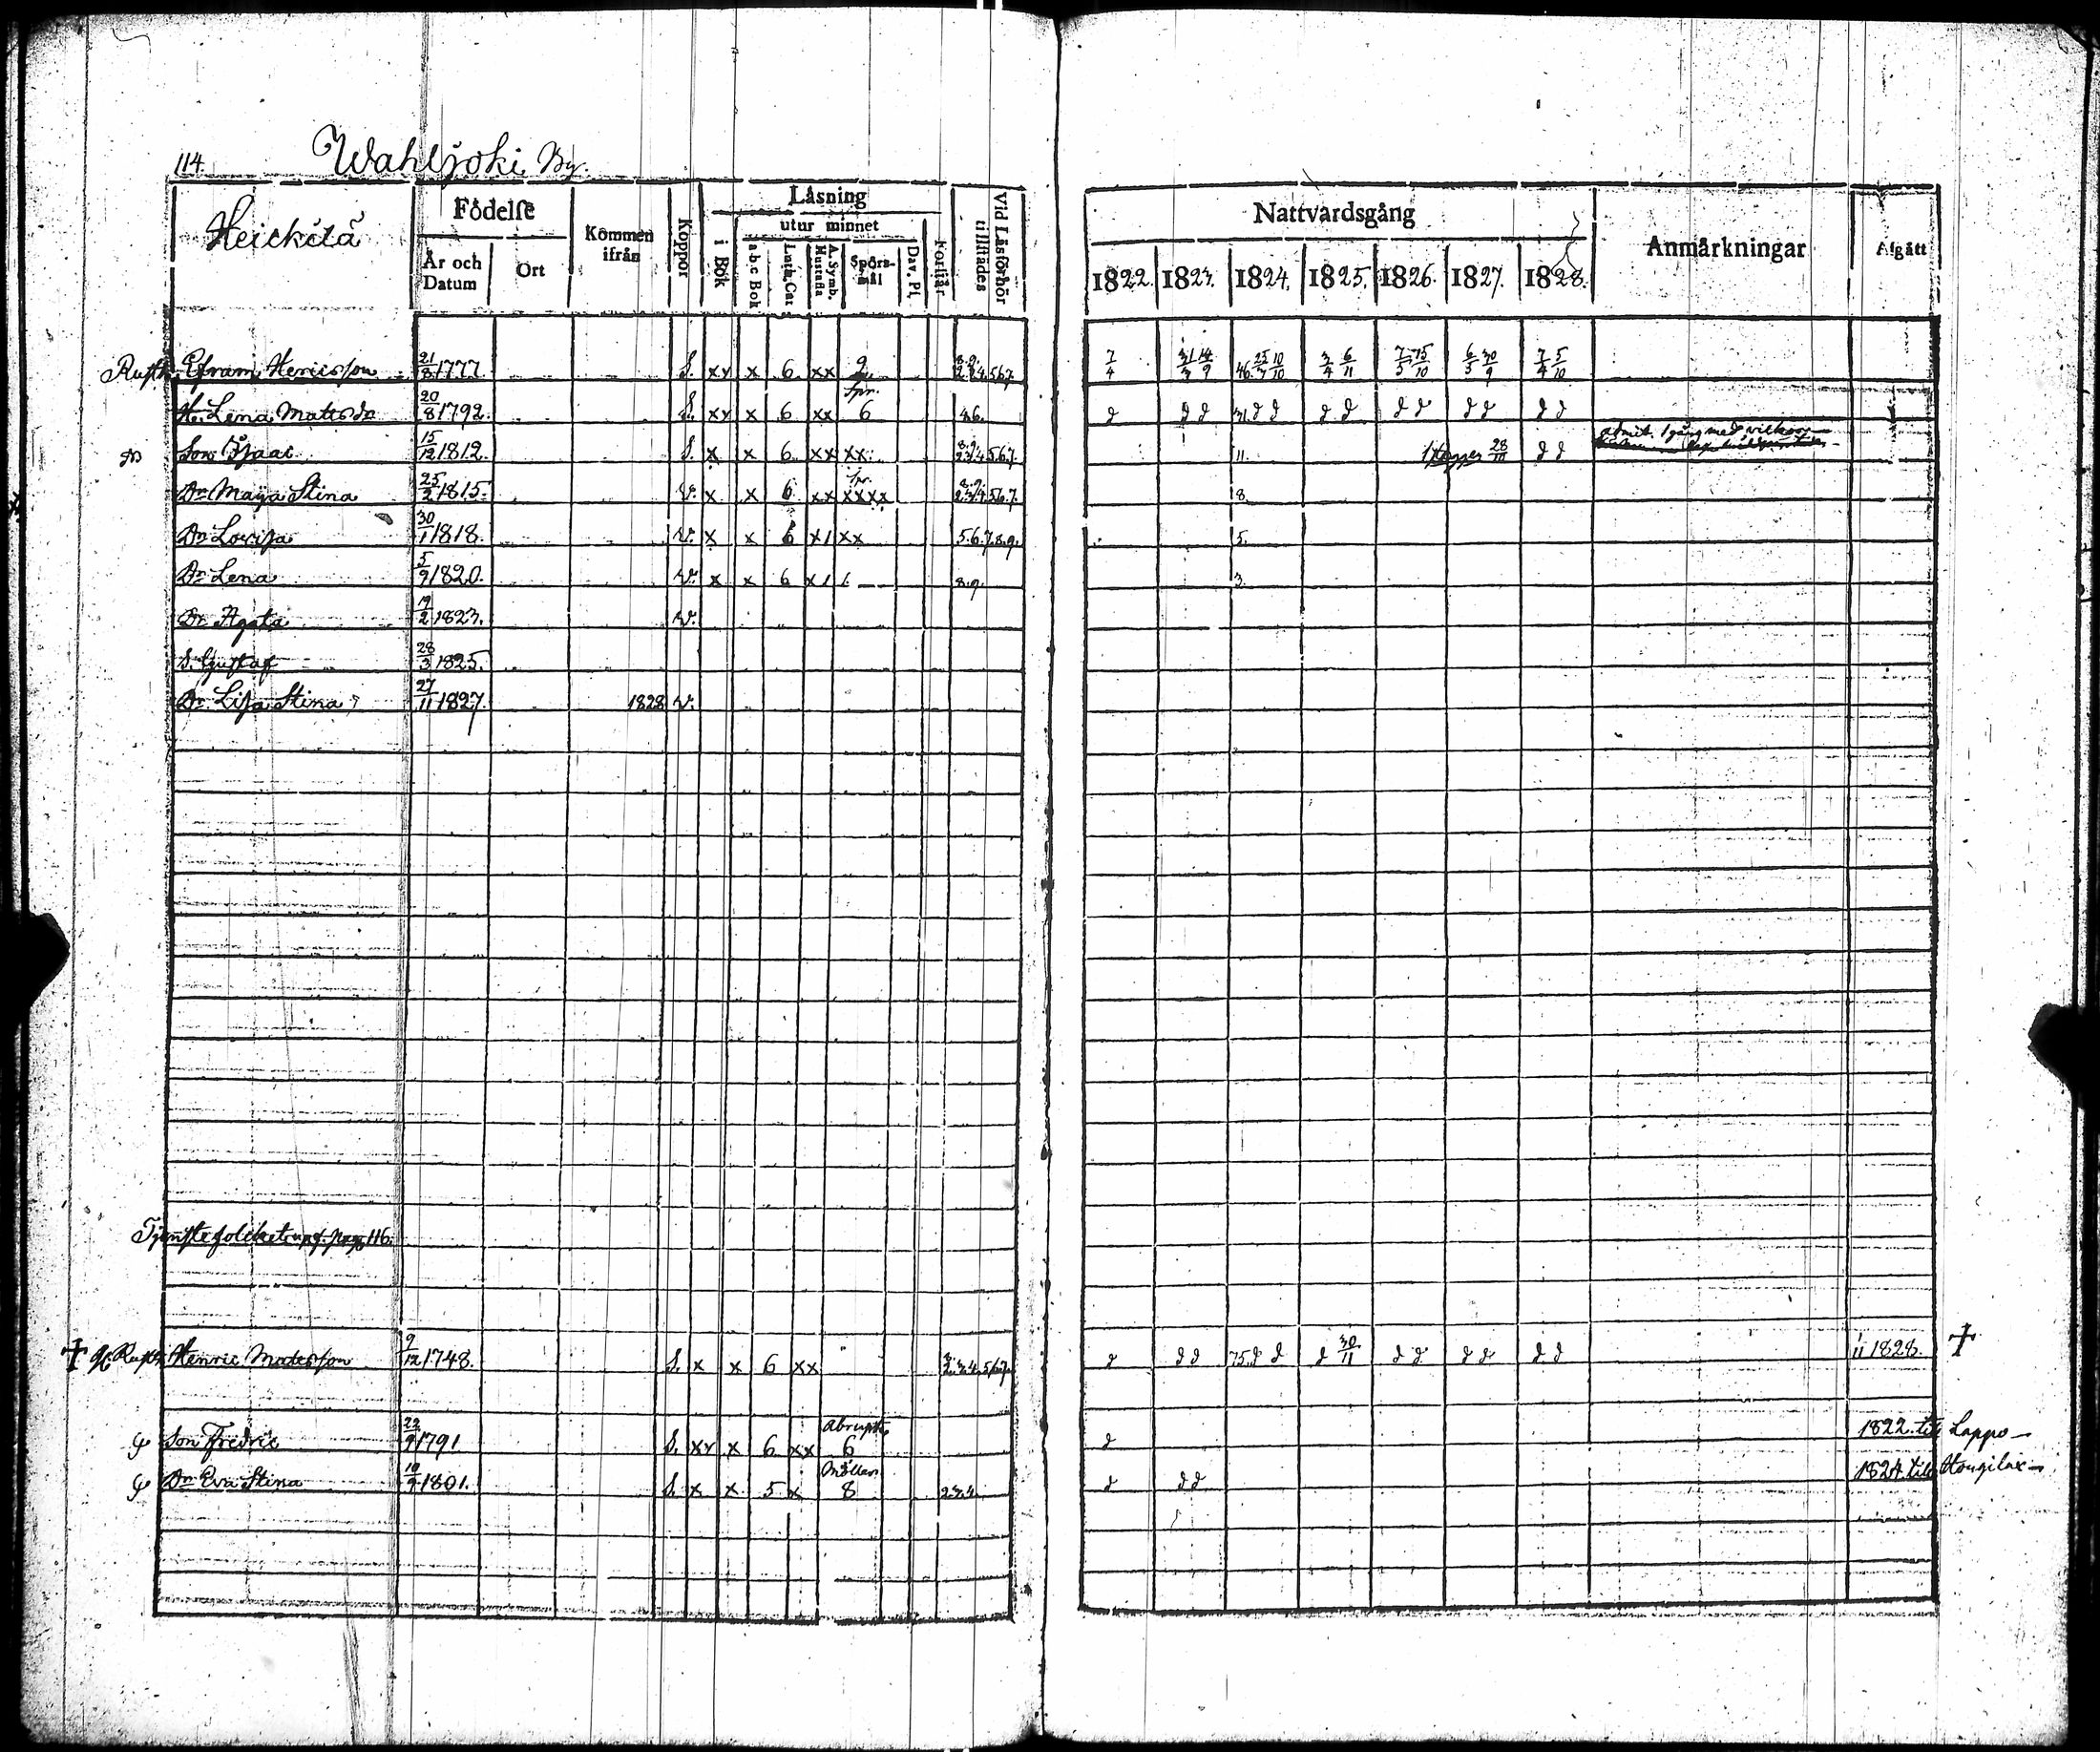 114.
Wahljoki By.
Heickilä
Födelse
År och Datum
Ort
Kommen ifrån
Koppor
Läsning
i Bok
utur minnet
a-b-c Bok
Luth. Cat
A. Symb. Hustafla
Spörs-mål
Dav. Ps.
Förstår
Vid Läsförhör tillstädes
Nattvardsgång
1822. 1823. 1824. 1825. 1826. 1827. 1828.
Anmärkningar
Afgått
Rusth. Efram Hericsson 21/8 1777 S. xx x 6 xx 9 8.9. 2.3.4.5.6.7. 7/4 46. 25/3 10/10 3/4 6/11 7/5 15/10 6/5 30/9 7/4 5/10
Spr.
H. Lena Matsdr 20/8 1792. S. xx x 6 xx 6 4.6. d d d 31. d d d d d d d d d d
admit. 1 gång med vilkor
Son Isaac 15/12 1812. S. x x 6 xx xx. 8.9. 2.3.4.5.6.7. 11. 28/10 d d
Spr.
Dr Maija Stina 25/2 1815. V. x x 6 xx xxxx 8.9. 2.3.4.5.6.7. 8.
Dr Lovisa 30/1 1818. V. x x 6 x1 xx 5.6.7.8.9. 5.
Dr Lena 5/9 1820. V. x x 6 x1 1. 8.9. 3.
Dr Agata 19/2 1823. V.
S. Gustaf 28/3 1825.
Dr Lisa Stina 27/11 1827. 1828 V.
Tjenstefolcket upf. pag 116.
† Rusth. Henric Matsson 9/12 1748. S. x x 6 xx 8. 2.3.4.5.6.7. d d d 75. d d d 30/11 d d d d d d 11 1828. †
abrupte
Son Fredric 22/9 1791 S. xx x 6 xx 6 d 1822. till Lappo
Dr Eva Stina 10/9 1801. S. x x 5 x 8 2.3.4. d d d 1824 till Hongilax